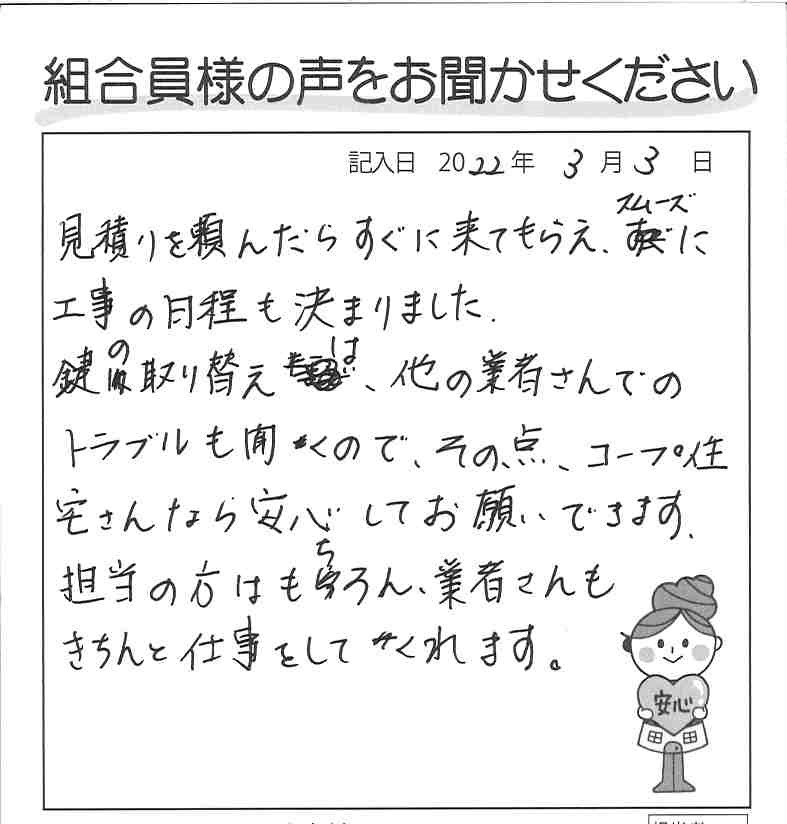 組合員様の声をお聞かせください
記入日 2022年 3月3日
見積りを頼んだらすぐに来てもらえ、スムーズに
工事の日程も決まりました.
鍵の取り替えは、他の業者さんでの
トラブルも聞くので、その点、コープ住
宅さんなら安心してお願いできます.
担当の方はもちろん、業者さんも
きちんと仕事をしてくれます。
安心